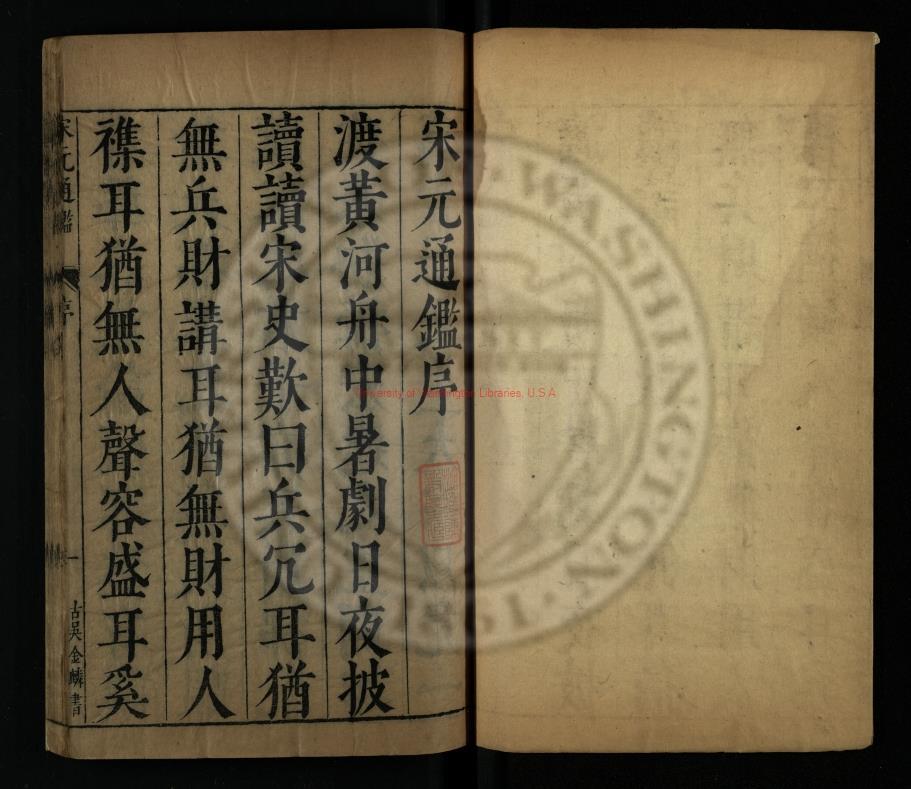 宋元通鑑序
渡黃河舟中暑劇日夜披
讀讀宋史歎曰兵冗耳猶
無兵財講耳猶無財用人
襍耳猶無人聲容盛耳奚
宋元通鑑
序
一
古吳金麟書
University of Washington Libraries, U.S.A
WASHINGTON